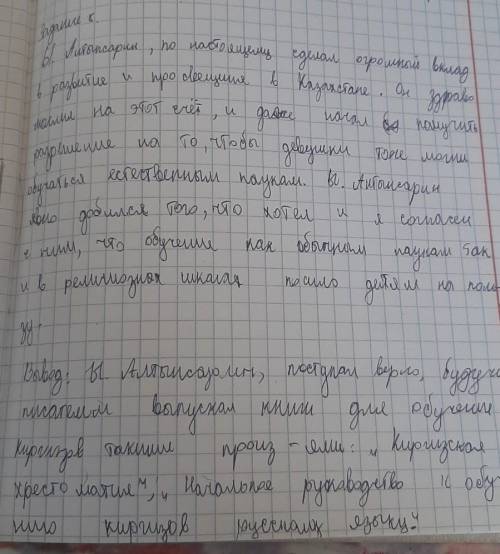 Задание 5.
Ы. Алтынсарин, по настоящему сделал огромный вклад
в развитие и просвещения в Казахстане. Он здраво
мыслил на этот счёт, и даже начал получить
разрешение на то, чтобы девушки тоже могли
обучаться естественным наукам. Ы. Алтынсарин
ясно добился того, что хотел и я согласен
с ним, что обучения как обычным наукам так
и в религиозных школах пошло детям на поль
зу.
Вывод: Ы Алтынсарин, поступал верно, будучи
писателем выпускал книги для обучения
Киргизов такими произ-ями: „Киргизская
хрестоматия", „Начальное руководство к обу
нию киргизов русскому языку"